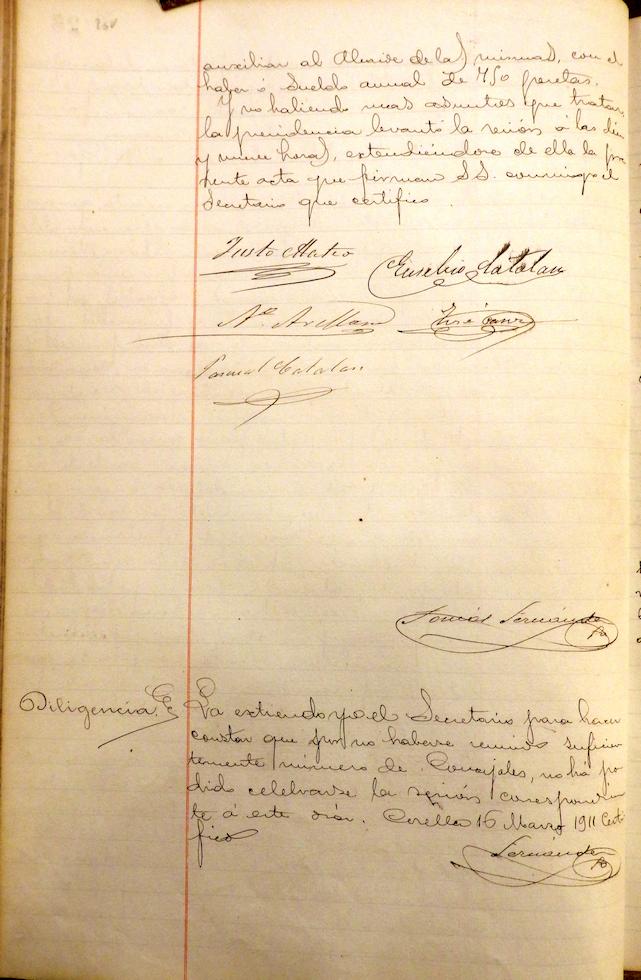 auxiliar al Alcaide de las mismas, con el
haber ó sueldo anual de 750 pesetas.
Y no habiendo mas asuntos que tratar,
la presidencia levantó la sesión á las diez
y nueve horas, extendiéndose de ella la pre
sente acta que firman S.S. conmigo el
Secretario que certifico.
Justo Mateo
Eusebio Catalan
Arellano
José
Pascual Catalan
Tomás Fernández
Diligencia
La extiendo yo el Secretario para hacer
constar que por no haberse reunido suficien
temente número de Concejales, no há po
dido celebrarse la sesión correspondien
te á este día. Corella 16 Marzo 1911 Certi
fico
Fernández